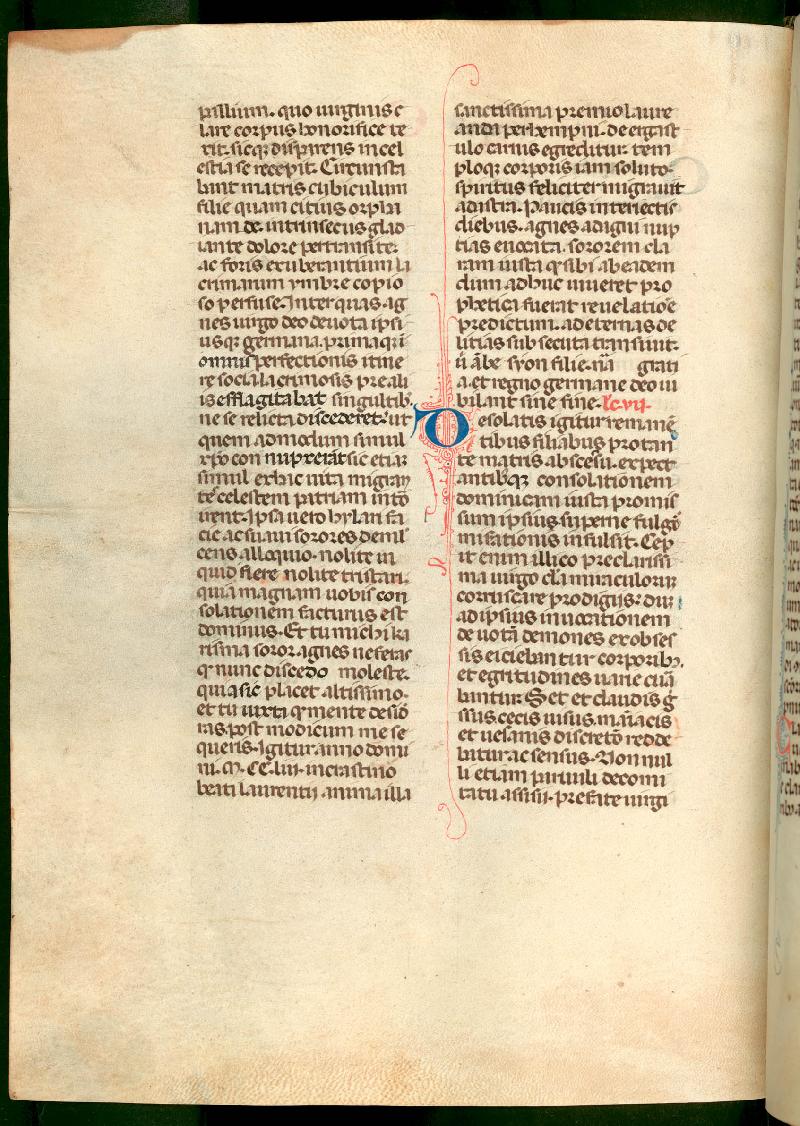 pallium. quo uirginis c
lare corpus honorifice te
xit. sicq; disparens in cel
estia se recepit. Circumsta
bant matris cubiculum
filie quam citius orpha
nam de. intrinsecus glad
iante dolore pertransite.
ac foris exuberantium la
crimarum ymbre copio
so perfuse. Inter quas ag
nes uirgo deo deuota ipsi
usq; germana. primaq; i
omnis perfectionis itine
re socia lacrimosis pre ali
is efflagitabat singultib;
ne se relicta discederet. ut
quem admodum simul
xp̄o con nupserāt sic etiaȝ
simul ex hac uita migran
te celestem patriam intō
uent. Ipsa uero hylari fa
cie ac suaui sorores demul
cens alloquio. nolite in
quid flere nolite tristari.
quia magnam uobis con
solationem facturus est
dominus. Et tu michi ka
rissima soror agnes ne feras
q nunc discedo moleste.
quia sic placet altissimo.
et tu iuxta q mente desid
ras. post modicum me se
queris. Igitur anno domi
ni. M. CC. liii. in crastino
beati laurentij anima illa
sanctissima premio laure
anda perhempni. de ergast
ulo carnis egreditur. tem
ploq; corporis iam soluto.
spiritus feliciter migrauit
ad astra. Paucis interiectis
diebus. agnes ad agni nup
tias euocata. sororem cla
ram iuxta q sibi ab eadem
dum adhuc uiueret pro
phetica fuerat reuelatiōe
predictum. ad eternas de
litias subsecuta transiuit.
ū ābe syon filie. nā grati
a. et regno germane deo iu
bilant sine fine. lc. vii.
Desolatis igitur remanē
tibus filiabus pro tan
te matris abscesu. expect
antibq; consolationem
dominicam iuxta promis
sum ipsius superne fulgor
miserationis infulsit. Cep
it enim illico preclarissi
ma uirgo clā miraculorum
corruscare prodigijs. dum
ad ipsius inuocationem
deuotā demones ex obses
sis eiciebantur corporib;.
et egritudines uarie cura
bantur. Set et claudis g̃
ssus. cecis uisus. maniacis
et uesanis discretō redde
batur ac sensus. Nonnul
li etiam paruuli de comi
tatu assisii. prefate uirgi